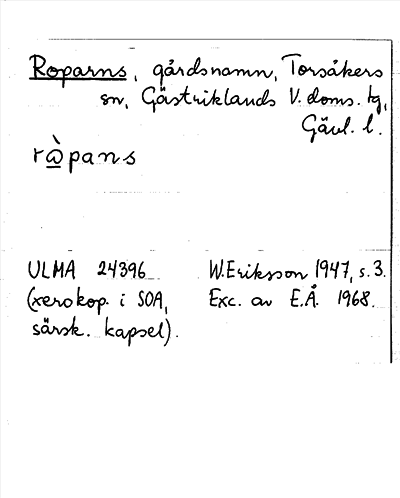 Roparns, gårdsnamn, Torsåkers
sn, Gästriklands V. doms. tg,
Gävl. l.
r@̀pans
ULMA 24396
(xerokop. i SOA,
särsk. kapsel).
W.Eriksson 1947, s. 3.
Exc. av E.Å. 1968.